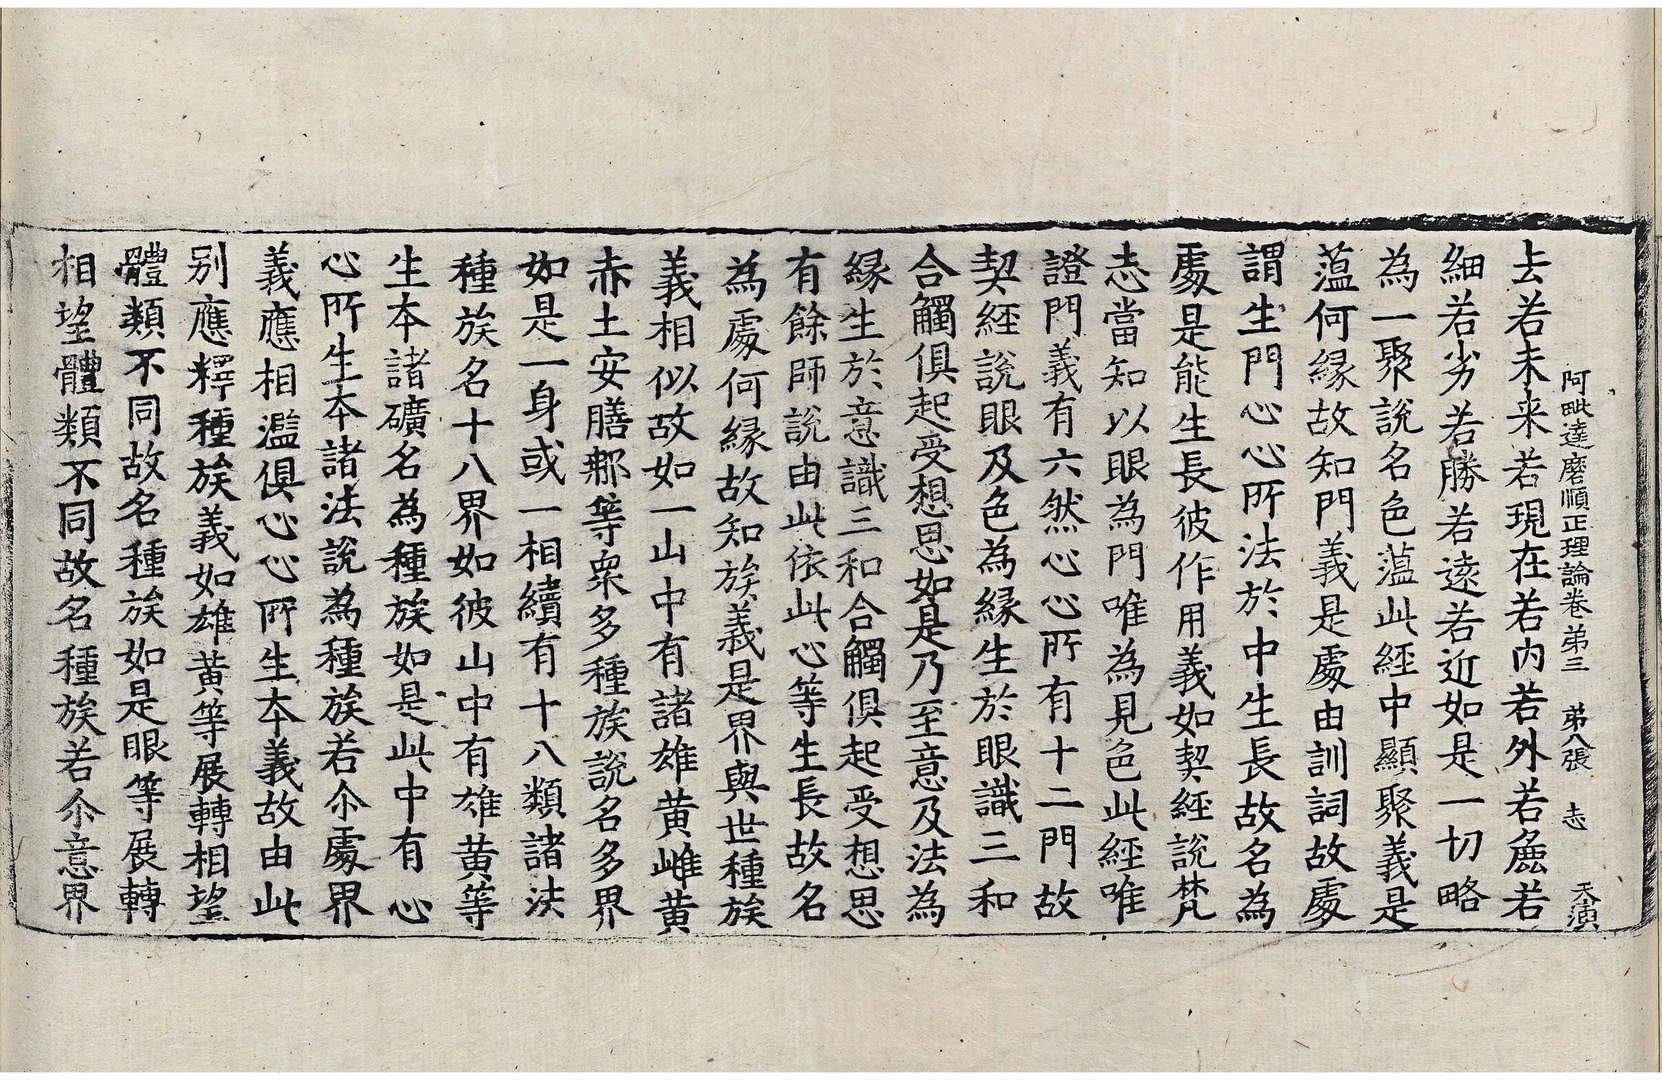 阿毗達磨順正理論卷弟三 弟八張 志 天演
去若未来若現在若內若外若麁若
細若劣若勝若遠若近如是一切略
為一聚說名色蕰此經中顯聚義是
蕰何緣故知門義是處由訓詞故處
謂生門心心所法於中生長故名為
處是能生長彼作用義如契經說梵
志當知以眼為門唯為見色此經唯
證門義有六然心心所有十二門故
契經說眼及色為緣生於眼識三和
合觸俱起受想思如是乃至意及法為
緣生於意識三和合觸俱起受想思
有餘師說由此依此心等生長故名
為處何緣故知族義是界與世種族
義相似故如一山中有諸雄黃雌黃
赤土安膳那等眾多種族說名多界
如是一身或一相續有十八類諸法
種族名十八界如彼山中有雄黃等
生本諸礦名為種族如是此中有心
心所生本諸法說為種族若尒處界
義應相濫俱心心所生本義故由此
別應釋種族義如雄黃等展轉相望
體類不同故名種族如是眼等展轉
相望體類不同故名種族若尒意界